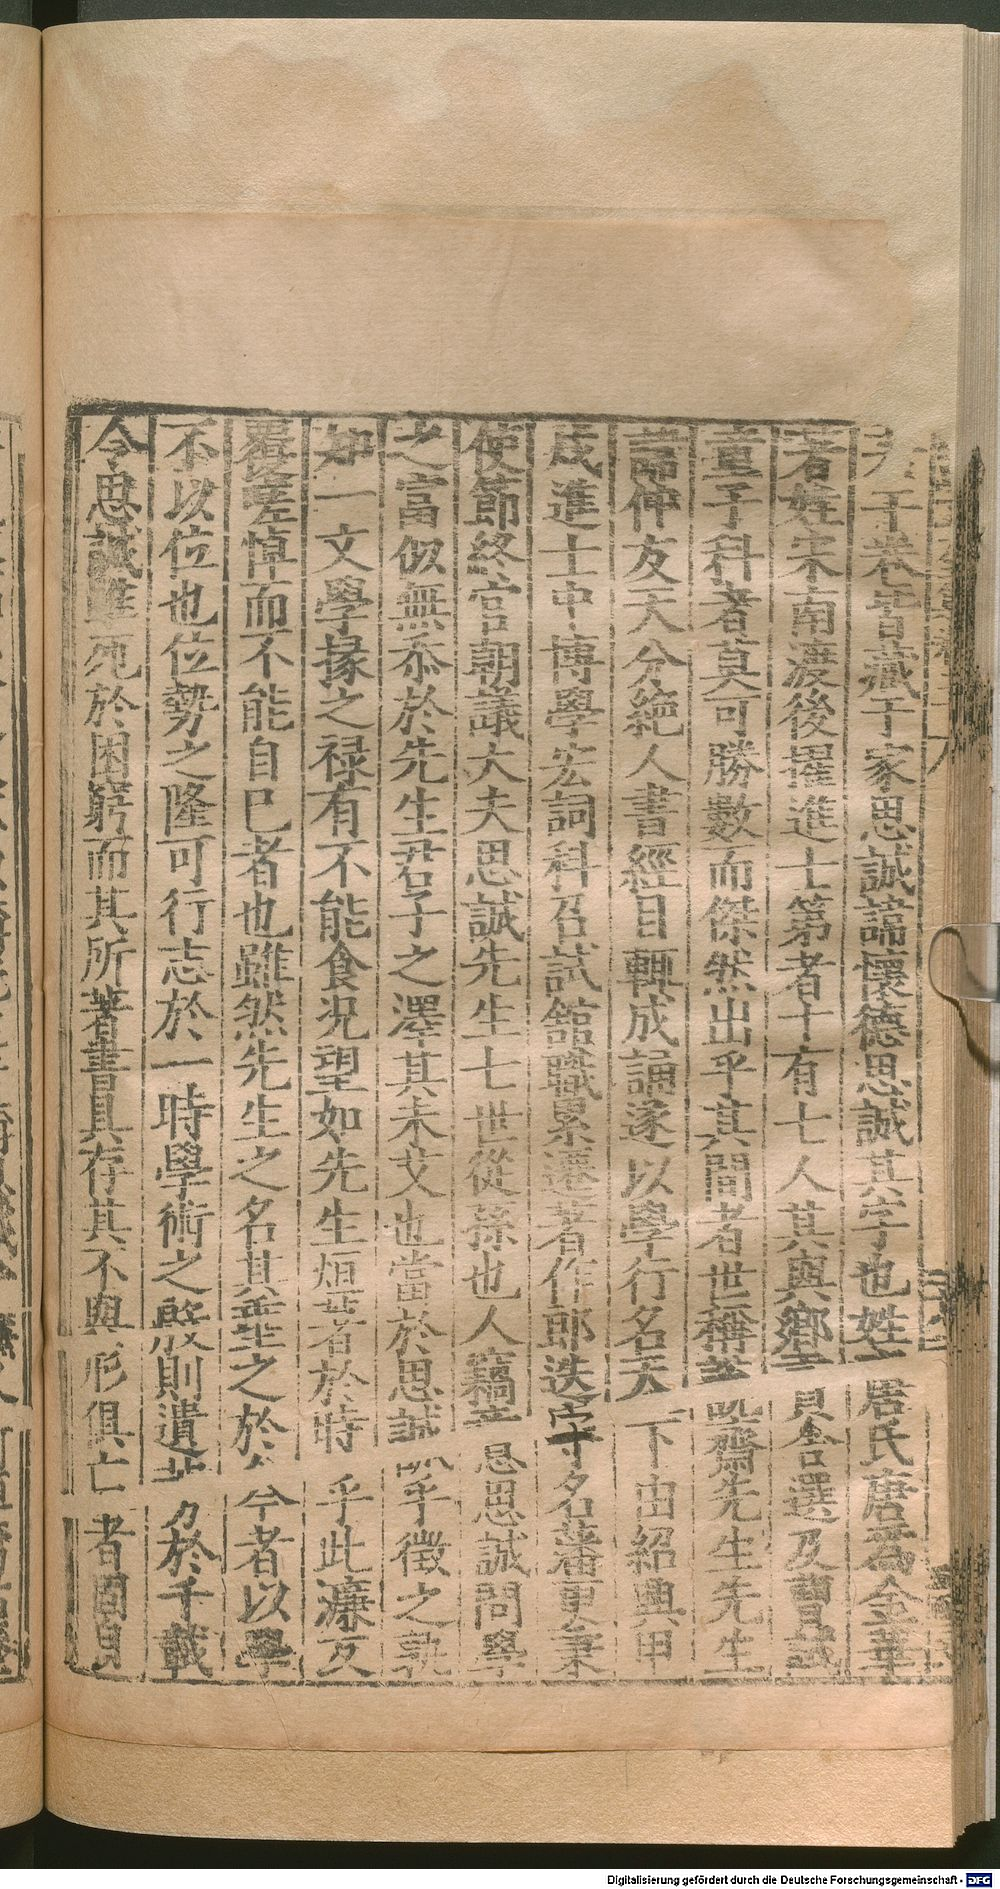 于卷皆藏于家思誠諱懷德思誠其字也姓 居氏唐爲金華
著姓宋南渡後擢進士第者十有七人其與鄉 貢舍選及曹試
童子科者莫可勝數而傑然出乎其間者世稱 齋先生先生
諱仲友天分絶人書經目輒成誦遂以學行名天 下由紹興甲
戌進士中博學宏詞科召試舘職累遷著作郎迭守名藩更秉
使節終官朝議大夫思誠先生七世從孫也人竊 思誠問學
之富似無忝於先生君子之澤其未艾也當於思誠 乎徵之孰
知一文學掾之禄有不能食況望如先生烜 者於時 乎此濂
嗟悼而不能自已者也雖然先生之名其 之於 今者以學
不以位也位勢之隆可行志於一時學術之 則遺 於千載
今思誠雖死於困窮而其所著書具存其不與形俱亡 者
Digitalisierung gefördert durch die Deutsche Forschungsgemeinschaft - DFG